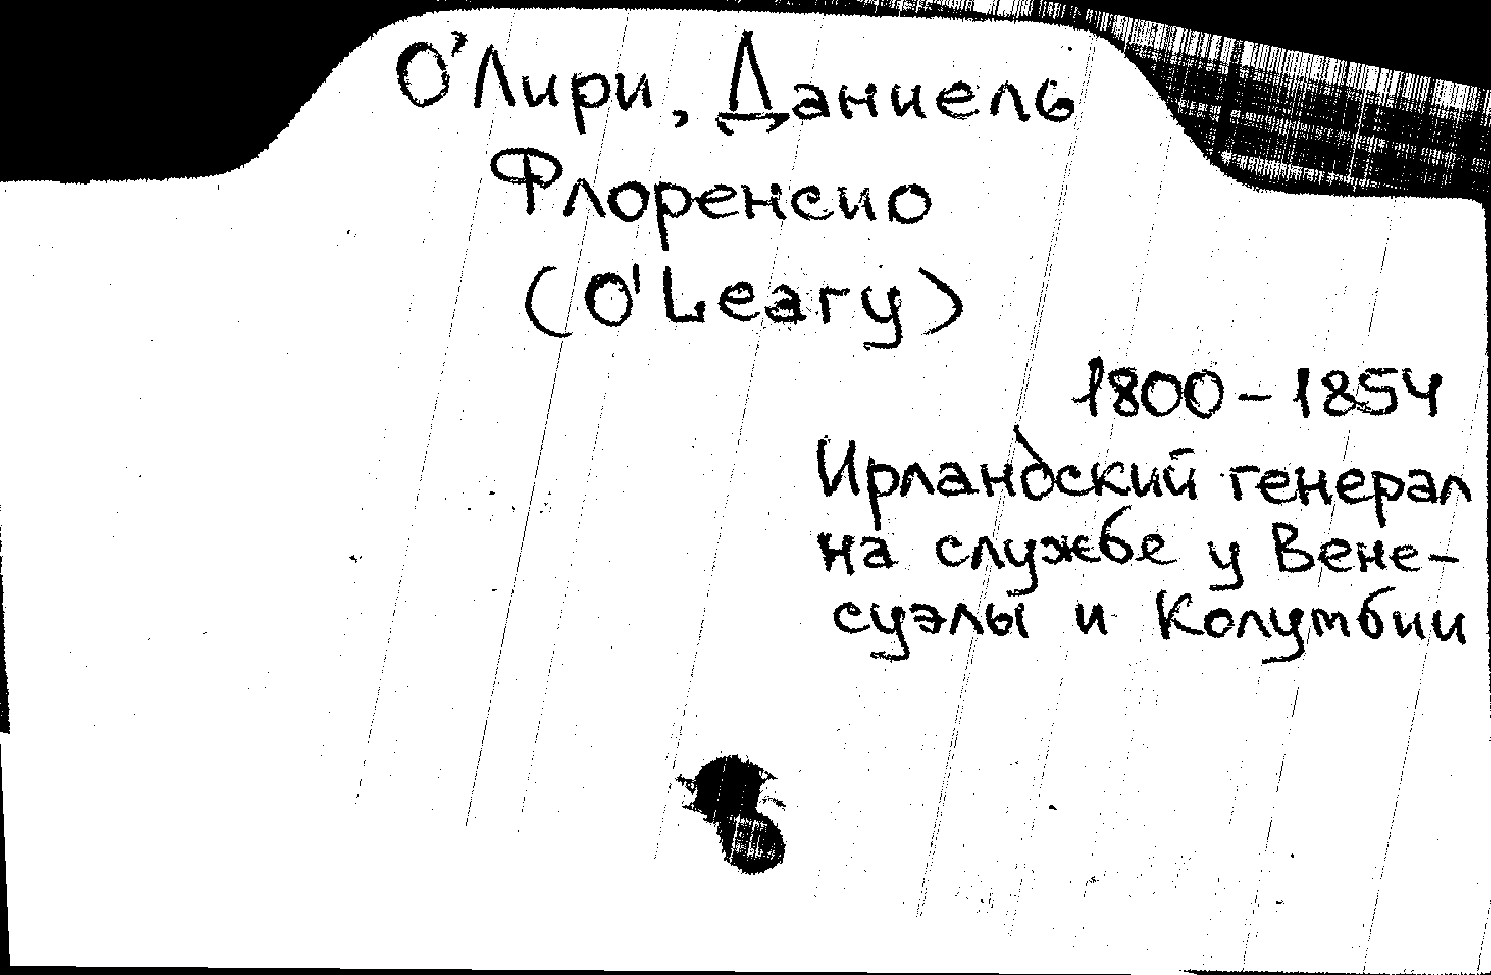 О'Лири, Даниель
Флоренсио
(O'Leary)
1800-1854
Ирландский генерал
на службе у Вене-
суэлы и Колумбии